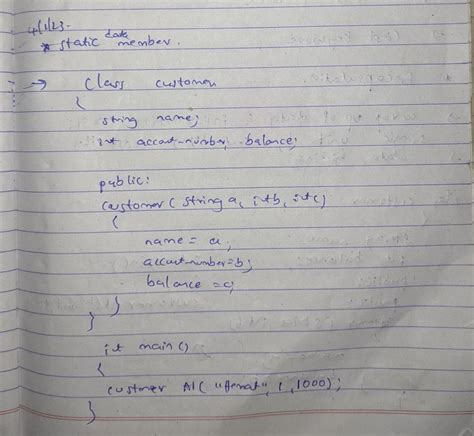 4/1/23.
* static data member.
→ Class customer
{
string name;
int account-number, balance;
public:
customer( string a, int b, int c)
{
name = a;
account-number = b;
balance = c;
}
}
int main()
{
customer A1( " ", 1, 1000);
}